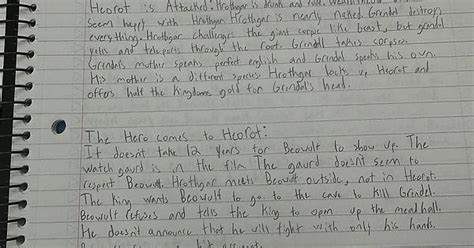 Heorot is Attacked: Hrothgar is drunk and rude. Wealhtheow
Seem happy with Hrothgar Hrothgar is nearly naked. Grendel destroys
everything. Hrothgar challenges the giant corpse like beast, but grendel
yells and teleports through the roof. Grendel takes corpses.
Grendels mother speaks perfect english and Grendel speaks his own.
His mother is a different species. Hrothgar locks up Heorot and
offers half the kingdoms gold for Grendel's head.
The Hero comes to Heorot:
It doesn't take 12 years for Beowulf to show up The
watch gaurd is in the film The gaurd doesn't seem to
respect Beowulf. Hrothgar meets Beowulf outside, not in Heorot.
The king wants Beowulf to go to the cave to kill Grendel.
Beowulf refuses and tells the king to open up the mead hall.
He doesn't announce that he will fight with only his hands.